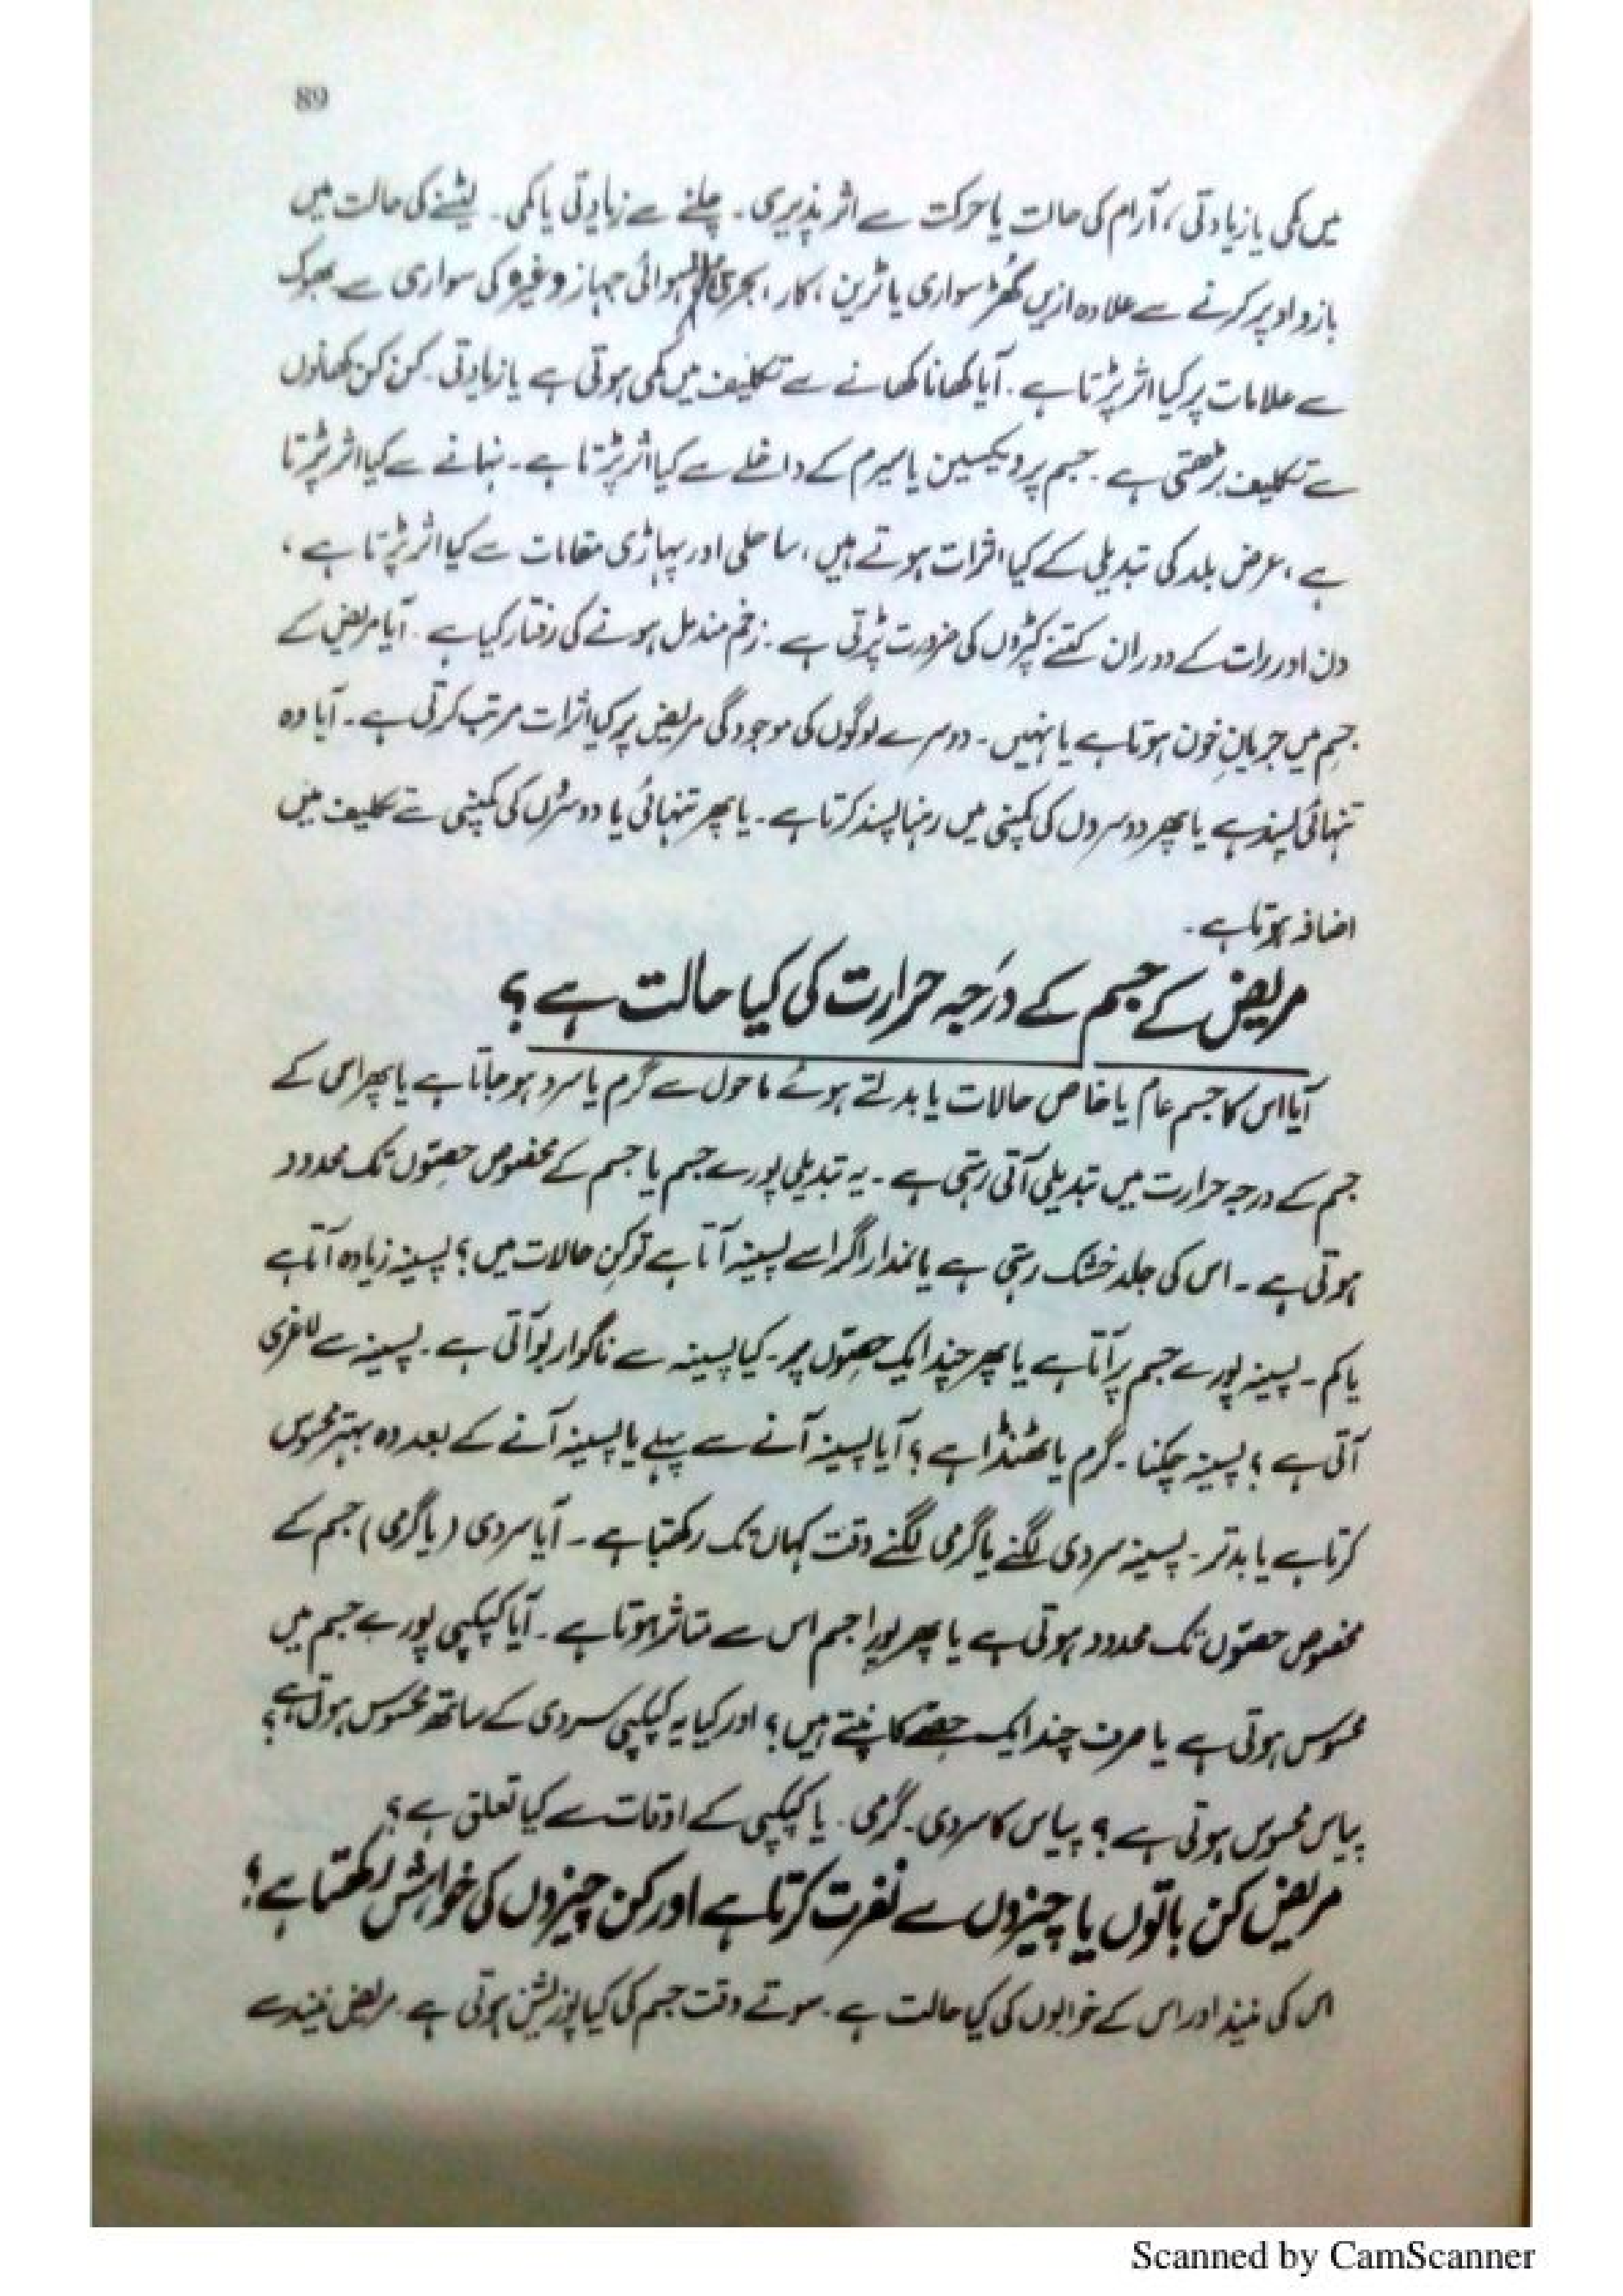 89
میں کمی یا زیادتی، آرام کی حالت یا حرکت سے اثر پذیری۔ چلنے سے زیادتی یا کمی۔ لیٹنے کی حالت میں
بازو اوپر کرنے سے علاوہ ازیں گھڑ سواری یا ٹرین، کار، بحری ہوائی جہاز وغیرہ کی سواری سے بھوک
سے علامات پر کیا اثر پڑتا ہے۔ آیا کھانا کھانے سے تکلیف میں کمی ہوتی ہے یا زیادتی۔ کن کن کھانوں
سے تکلیف بڑھتی ہے۔ جسم پر ویکسین یا سیرم کے داخلے سے کیا اثر پڑتا ہے۔ نہانے سے کیا اثر پڑتا
ہے، عرض بلد کی تبدیلی کے کیا اثرات ہوتے ہیں، ساحلی اور پہاڑی مقامات سے کیا اثر پڑتا ہے،
دن اور رات کے دوران کتنے کپڑوں کی ضرورت پڑتی ہے۔ زخم مندمل ہونے کی رفتار کیا ہے۔ آیا مریض کے
جسم میں جریانِ خون ہوتا ہے یا نہیں۔ دوسرے لوگوں کی موجودگی مریض پر کیا اثرات مرتب کرتی ہے۔ آیا وہ
تنہائی پسند ہے یا پھر دوسروں کی کمپنی میں رہنا پسند کرتا ہے۔ یا پھر تنہائی یا دوسروں کی کمپنی سے تکلیف میں
اضافہ ہوتا ہے۔
مریض کے جسم کے درجہ حرارت کی کیا حالت ہے؟
آیا اس کا جسم عام یا خاص حالات یا بدلتے ہوئے ماحول سے گرم یا سرد ہو جاتا ہے یا پھر اس کے
جسم کے درجہ حرارت میں تبدیلی آتی رہتی ہے۔ یہ تبدیلی پورے جسم یا جسم کے مخصوص حصّوں تک محدود
ہوتی ہے۔ اس کی جلد خشک رہتی ہے یا نمدار اگر اسے پسینہ آتا ہے تو کِن حالات میں؟ پسینہ زیادہ آتا ہے
یا کم۔ پسینہ پورے جسم پر آتا ہے یا پھر چند ایک حصّوں پر۔ کیا پسینہ سے ناگوار بو آتی ہے۔ پسینہ سے لاغری
آتی ہے؟ پسینہ چکنا۔ گرم یا ٹھنڈا ہے؟ آیا پسینہ آنے سے پہلے یا پسینہ آنے کے بعد وہ بہتر محسوس
کرتا ہے یا بدتر۔ پسینہ سردی لگنے یا گرمی لگنے وقت کہاں تک رکھتا ہے۔ آیا سردی (یا گرمی) جسم کے
مخصوص حصّوں تک محدود ہوتی ہے یا پھر پورا جسم اس سے متاثر ہوتا ہے۔ آیا کپکپی پورے جسم میں
محسوس ہوتی ہے یا صرف چند ایک حصّے کانپتے ہیں؟ اور کیا یہ کپکپی سردی کے ساتھ محسوس ہوتی ہے؟
پیاس محسوس ہوتی ہے؟ پیاس کا سردی۔ گرمی۔ یا کپکپی کے اوقات سے کیا تعلق ہے؟
مریض کن باتوں یا چیزوں سے نفرت کرتا ہے اور کن چیزوں کی خواہش رکھتا ہے؟
اس کی نیند اور اس کے خوابوں کی کیا حالت ہے۔ سوتے وقت جسم کی کیا پوزیشن ہوتی ہے۔ مریض نیند سے
Scanned by CamScanner